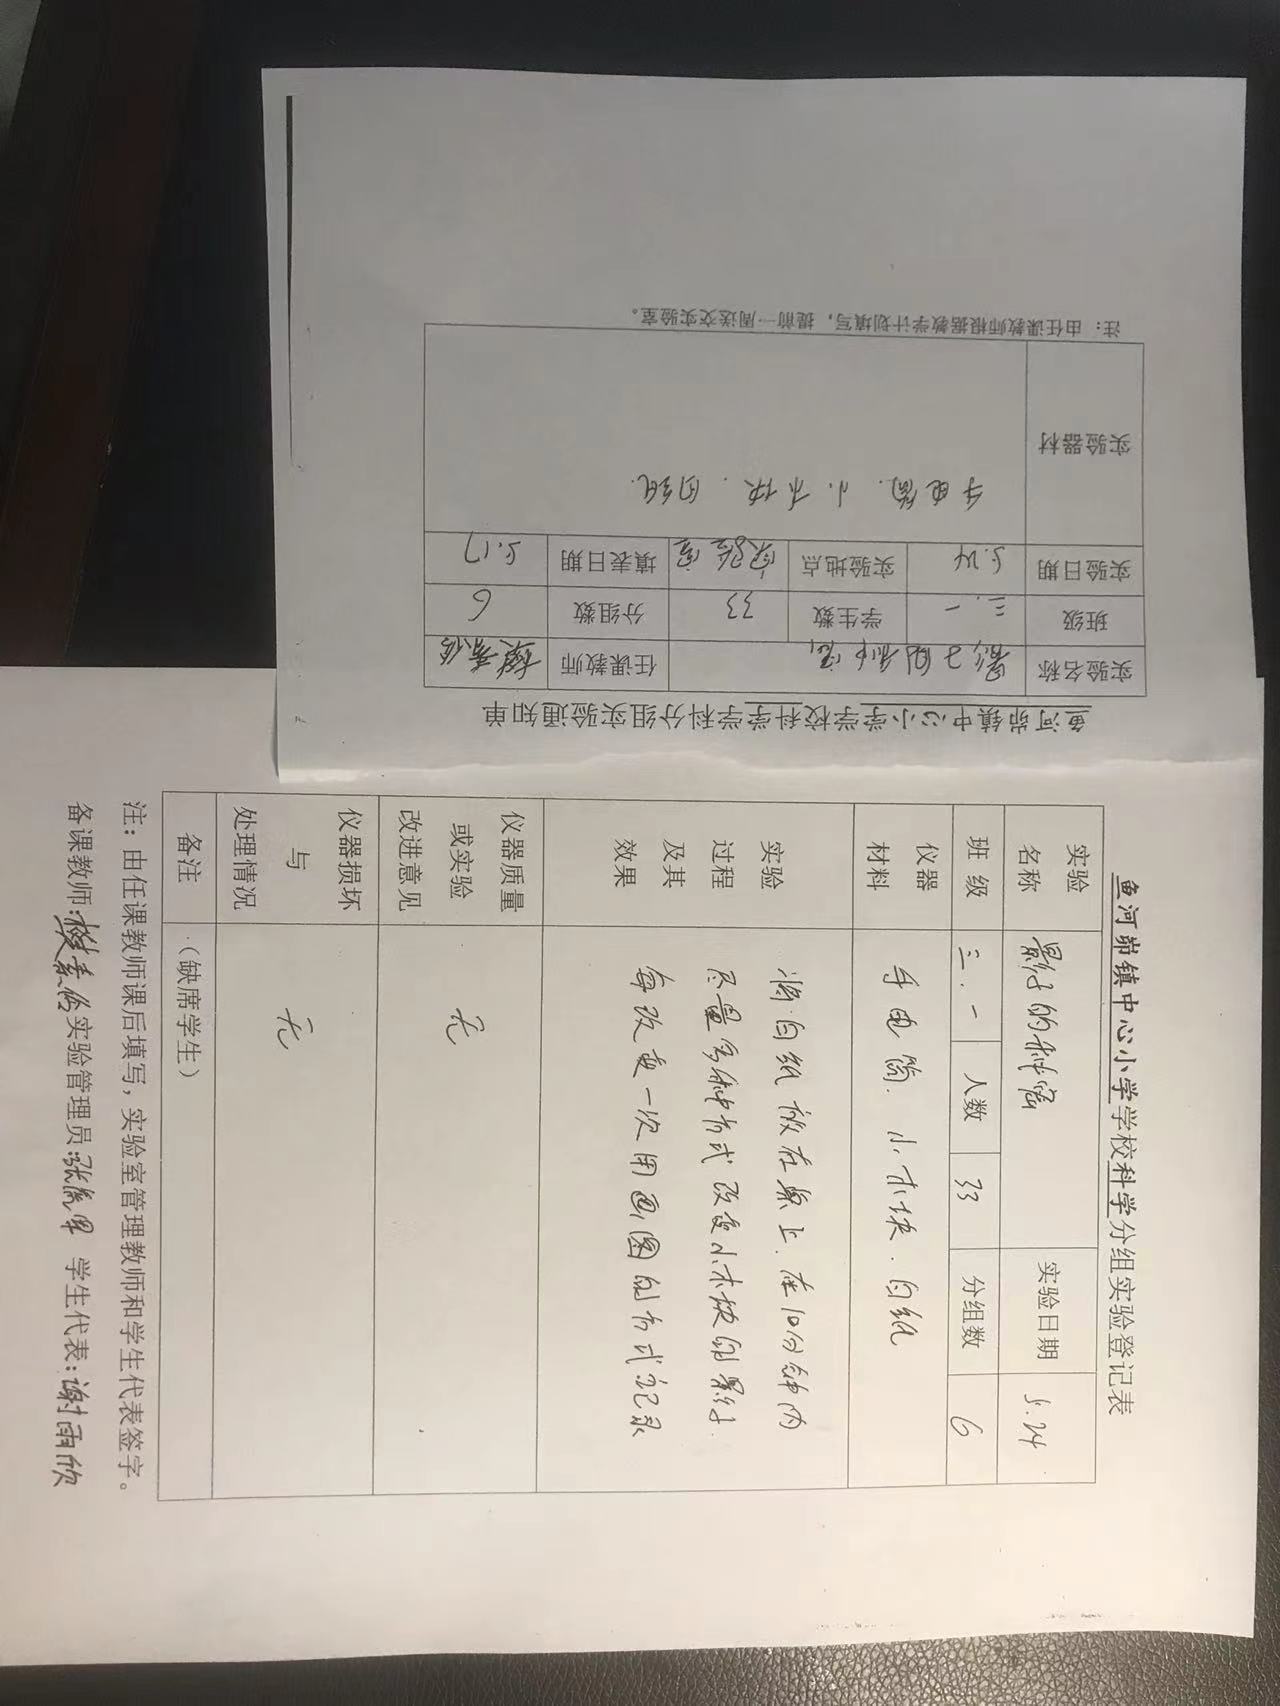 鱼河峁镇中心小学学校科学学科分组实验通知单
实验名称 影子的秘密 任课教师
班级 三.一 学生数 33 分组数 6
实验日期 5.24 实验地点 实验室 填表日期 5.17
实验器材 手电筒.小木块.白纸.
注：由任课教师根据教学计划填写，提前一周送交实验室。
鱼河峁镇中心小学学校科学分组实验登记表
实验名称 影子的秘密 实验日期 5.24
班级 三.一 人数 33 分组数 6
仪器材料 手电筒.小木块.白纸
实验过程及其效果
将白纸放在桌上.在10分钟内
尽量多种方式改变小木块的影子.
每改变一次用画图的方式记录
仪器质量或实验改进意见 无
仪器损坏与处理情况 无
备注 （缺席学生）
注：由任课教师课后填写，实验室管理教师和学生代表签字。
备课教师: 实验管理员: 学生代表:谢雨欣